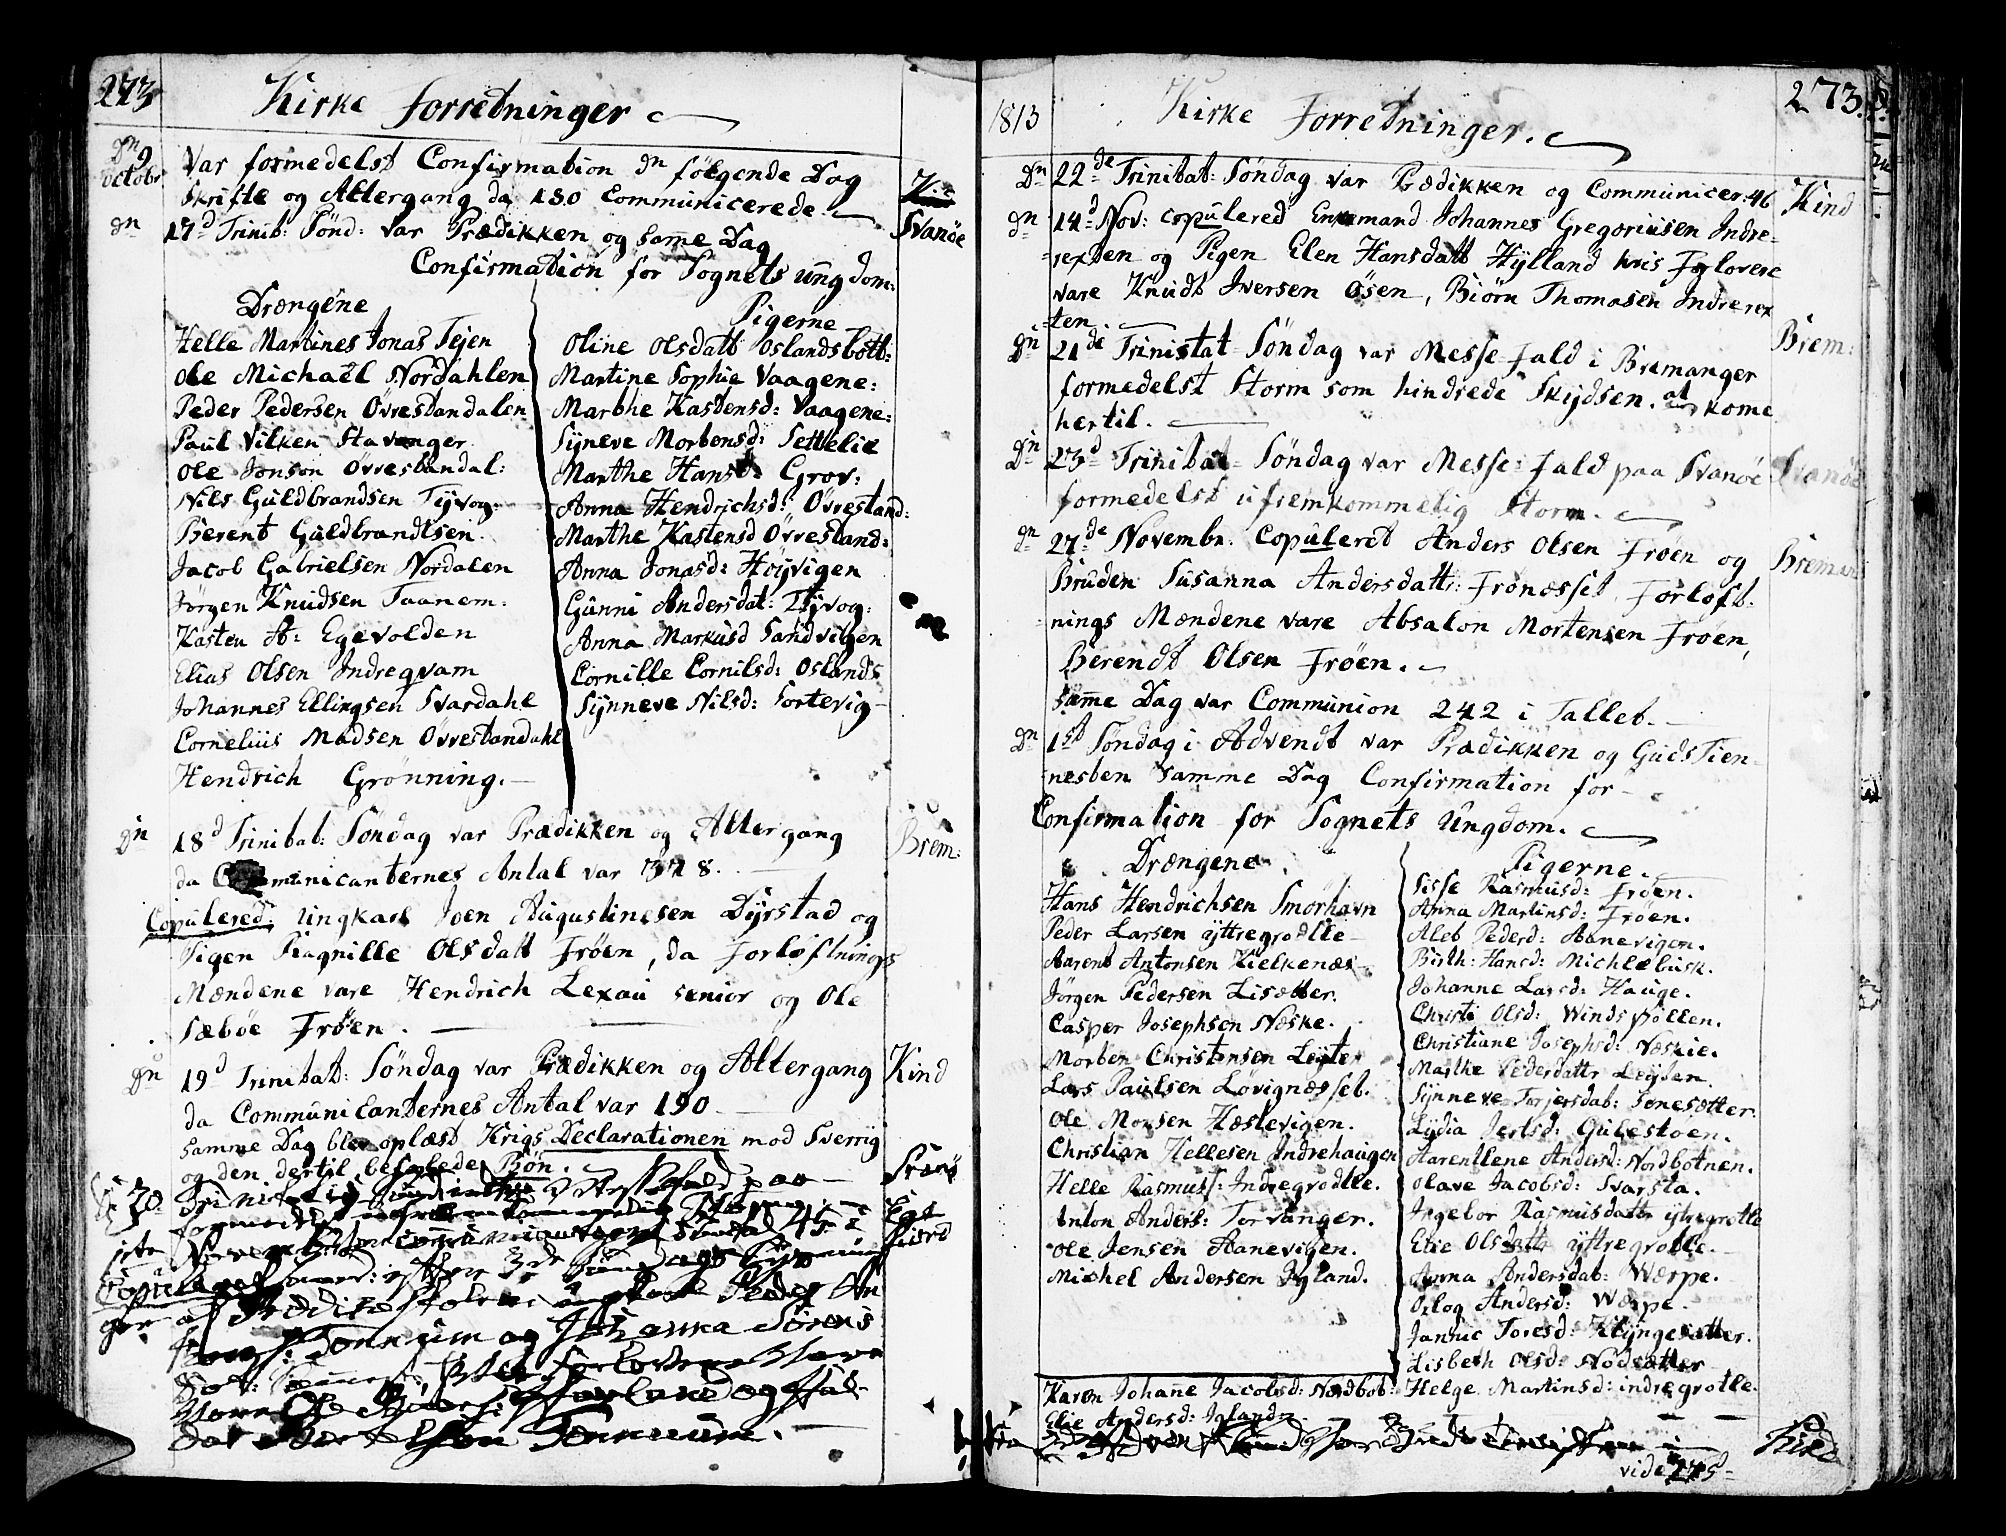 273
Kirke Forretninger
Dn 9 octobr
Var formedelst Confirmation dn følgende Dag
Skrifte og Altergang da 130 Communicerede
dn 17d Trinit: Sønd: var Prædikken og samme Dag
Svanöe
Confirmation for Sognets ungdom:
Drængene
Helle Martines Jonas Tejen
Ole Michaël Nordahlen
Peder Pedersen Övrestandalen
Paul Vilken Stavanger
Ole Jonson Övrestandal:
Nils Guldbrandsen Tyvog
Berent Guldbrandtsen
Jacob Gabrielsen Nordalen
Jörgen Knudsen Taanem:
Kasten A: Egevolden
Elias Olsen Indreqvam
Johannes Ellingsen Svardahl
Cornelius Madsen Övrestandahl
Hendrich Grönning.
Pigerne
Oline Olsdatt Oslandsbott:
Martine Sophie Vaagene:
Marthe Kastensd: Vaagene:
Synneve Mortensd: Settelie
Marthe Hansd: Grov:
Anna Hendrichsd: Övrestand:
Marthe Kastensd Övrestand:
Anna Jonasd: Höyvigen
Gunni Andersdat: Tyvog:
Anna Markusd Sandvigen
Cornille Cornilsd: Oslands
Synneve Nilsd: Sortevig
dn 18d Trinitat: Söndag var Prædikken og Altergang
Brem:
da Communicanternes Antal var 378.
Copulered: Ungkarl Joen Augustinesen Dyrstad og
Pigen Ragnille Olsdatt Fröen, da Forlöftnings
Mændene vare Hendrich Lexau senior og Ole
Sæböe Fröen.
dn 19d Trinitat: Söndag var Prædikken og Altergang
Kind
da Communicanternes Antal var 190
Samme Dag blev oplæst Krigs Declarationen mod Sverrig
og den dertil befalede Bön.
20 Trinitatis Messefald paa
Svanö
45 i
Eqs
fiord
Copuleret
Peder An
Tonnum og Johanna Sörens
forlovere
Tonnum.
1813
Kirke Forretninger.
273.
Dn 22de Trinitat: Söndag var Prædikken og Communicer: 46
Kind
dn 14d Nov: copulered Enkemand Johannes Gregoriusen Indre=
=rexten og Pigen Elen Hansdatt Hylland hvis Forlovere
vare Knudt Iversen Ösen, Biörn Thomasen Indrerex
=ten.
dn 21de Trinitat Söndag var Messe-Fald i Bremanger
Brem:
formedelst Storm som hindrede Skydsen at kome
hertil.
Dn 23d Trinitat= Söndag var Messe: Fald paa Svanöe
Svanöe
formedelst ufremkommelig Storm.
dn 27de Novembr. Copuleret Anders Olsen Fröen og
Bremang
Bruden Susanna Andersdattr: Frönæsset, Forlöft-
=nings Mændene vare Absalon Mortensen Fröen,
Berendt Olsen Fröen.
samme Dag var Communion 242 i Tallet.
Dn 1st Söndag i Advendt var Prædikken og Guds Tien-
=nesten samme Dag Confirmation for
Confirmation for Sognets Ungdom.
Drængene
Hans Hendrichsen Smörhavn
Peder Larsen yttregrotlle
Aarent Antonsen Kielkenæs
Jörgen Pedersen Lisætter.
Casper Josephsen Næske.
Morten Christensen Leyten
Lars Paulsen Lövignæsset.
Ole Monsen Hæstevigen.
Christian Hellesen Indrehaugen
Helle Rasmuss: Indregrotlle.
Anton Anders: Torvanger.
Ole Jensen Aanevigen.
Michel Andersen Igland.
Pigerne.
Sisse Rasmusd: Fröen.
Anna Martinsd: Fröen.
Aleb Pedersd: Aanevigen.
Birth: Hansd: Michlebusk.
Johanne Larsd: Hauge.
Christi Olsd: Windspollen.
Christiane Josephsd: Næskie.
Marthe Pedersdattr Leyten.
Synneve Torjersdat: Tonesætter.
Lydia Jertsd: Gulestöen.
Aarentlene Andersd: Nordbotnen.
Olave Jacobsd: Svarsta.
Ingebor Rasmusdattr ytregrotlle
Elie Olsdattr yttregrotlle.
Anna Andersdat: Wærpe.
Orlog Andersd: Wærpe.
Janhic Toresd: Klyngesætter.
Lisbeth Olsd: Nödsætter
Karen Johane Jacobsd: Nordbot: Helge Martinsd: indregrotlle.
Elie Andersd: Iglandr
Kind
vide 275